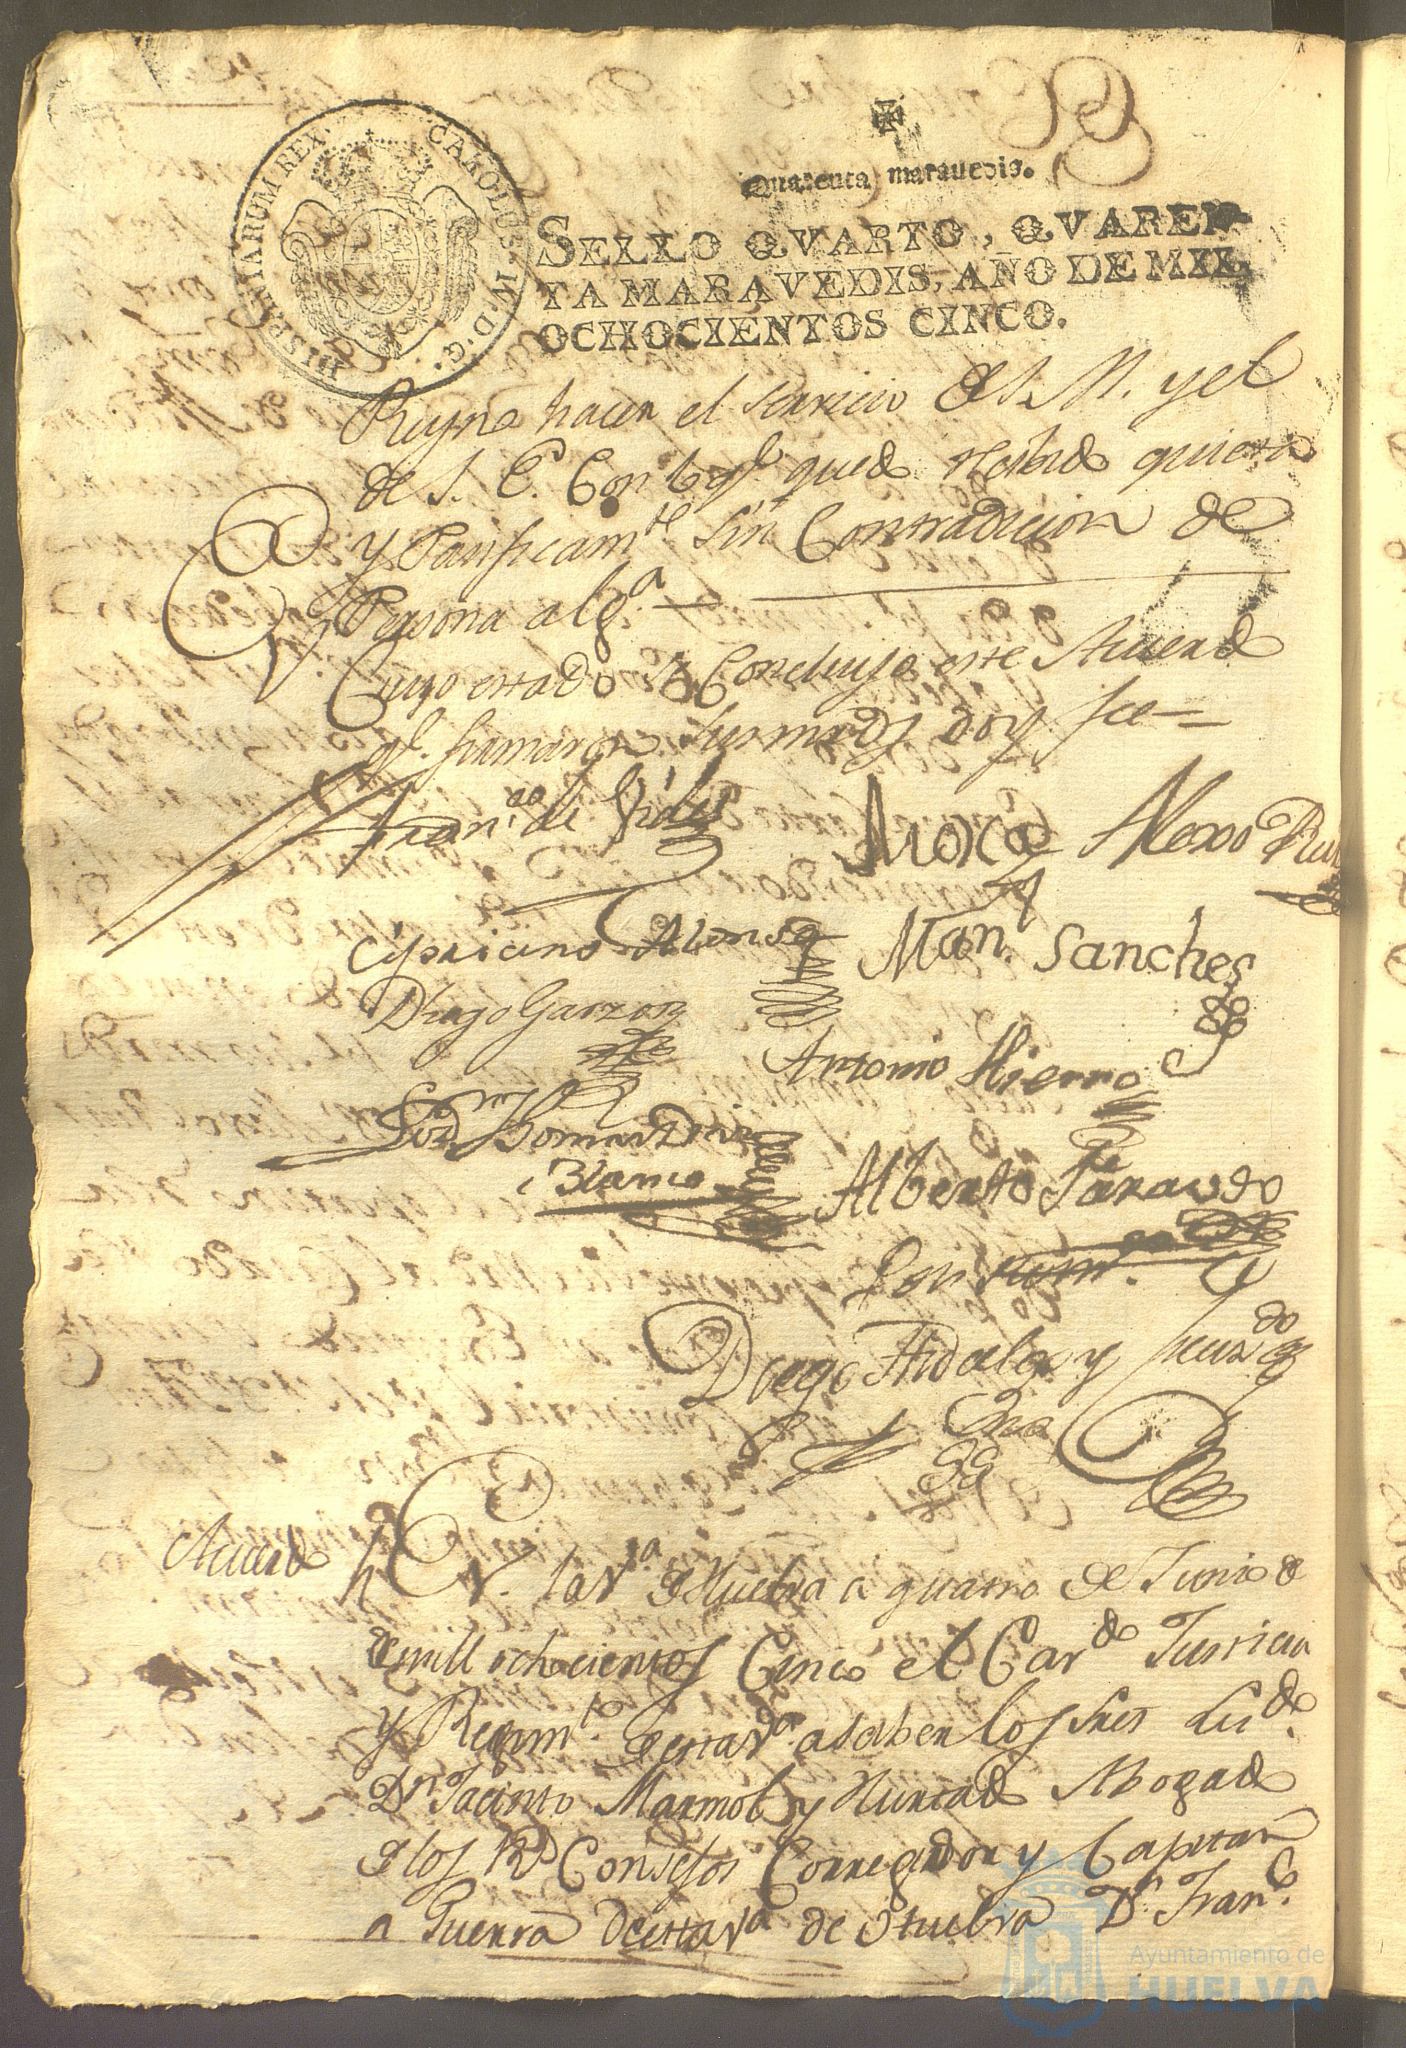 HISPANIARUM REX. CAROLUS IV D. G.
Quarenta maravedis.
SELLO QVARTO, QVAREN
TA MARAVEDIS, AÑO DE MIL
OCHOCIENTOS CINCO.
hacer el servicio de S. M. y el
de S. E. Con lo ql. quedo quieta
y Pasificamte. sin Contradicion de
Persona alga.
Cuyo estado se Concluyo este Acuerdo
ql. firmaron sus mrds doy fee
Franco. de
Moxa Alexo Ruiz
Cipriano Alonso Manl. Sanches
Diego Garzon
Antonio Hierro
Blanco
Alberto Faraudo
Diego Hidalgo y
Acuerdo
En la Va. de Huelva a quatro de Junio de
de mill ochocientos Cinco el Cavdo. Justicia
y Regimto. de esta Va. a saber los Sres Licdo.
Dn. Jacinto Marmol y Hurtado Abogado
de los Rs Consejos Corregidor y Capitan
a Guerra de esta Va. de Huelva Dn. Franco.
Ayuntamiento de
HUELVA